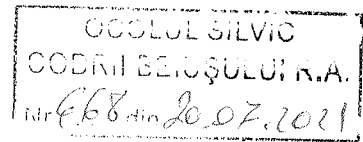 OCOLUL SILVIC
CODRII BEIUŞULUI R.A.
Nr 668 din 20.07.2021